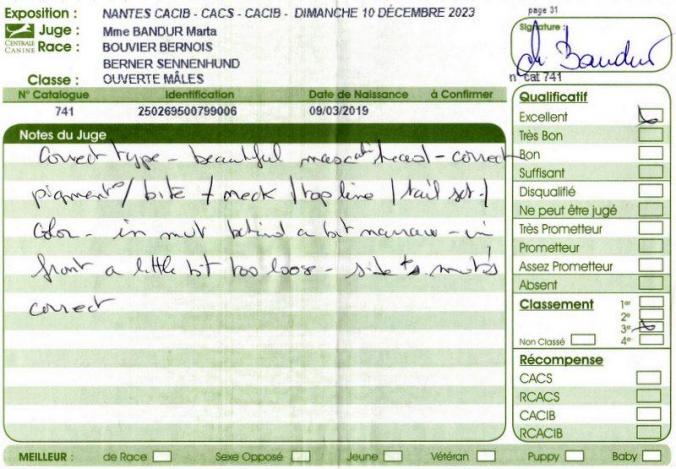 Exposition : NANTES CACIB - CACS - CACIB - DIMANCHE 10 DÉCEMBRE 2023 page 31
Juge : Mme BANDUR Marta Signature :
CENTRALE CANINE Race : BOUVIER BERNOIS
BERNER SENNENHUND
Classe : OUVERTE MÂLES n° cat 741
N° Catalogue Identification Date de Naissance à Confirmer
741 250269500799006 09/03/2019
Notes du Juge
Correct type - beautiful head - correct
pigment / bite + neck / top line / tail set /
color - in behind a bit narrow - in
front a little bit too loose - side
correct
Qualificatif
Excellent
Très Bon
Bon
Suffisant
Disqualifié
Ne peut être jugé
Très Prometteur
Prometteur
Assez Prometteur
Absent
Classement 1er
2e
3e
Non Classé 4e
Récompense
CACS
RCACS
CACIB
RCACIB
MEILLEUR : de Race Sexe Opposé Jeune Vétéran Puppy Baby